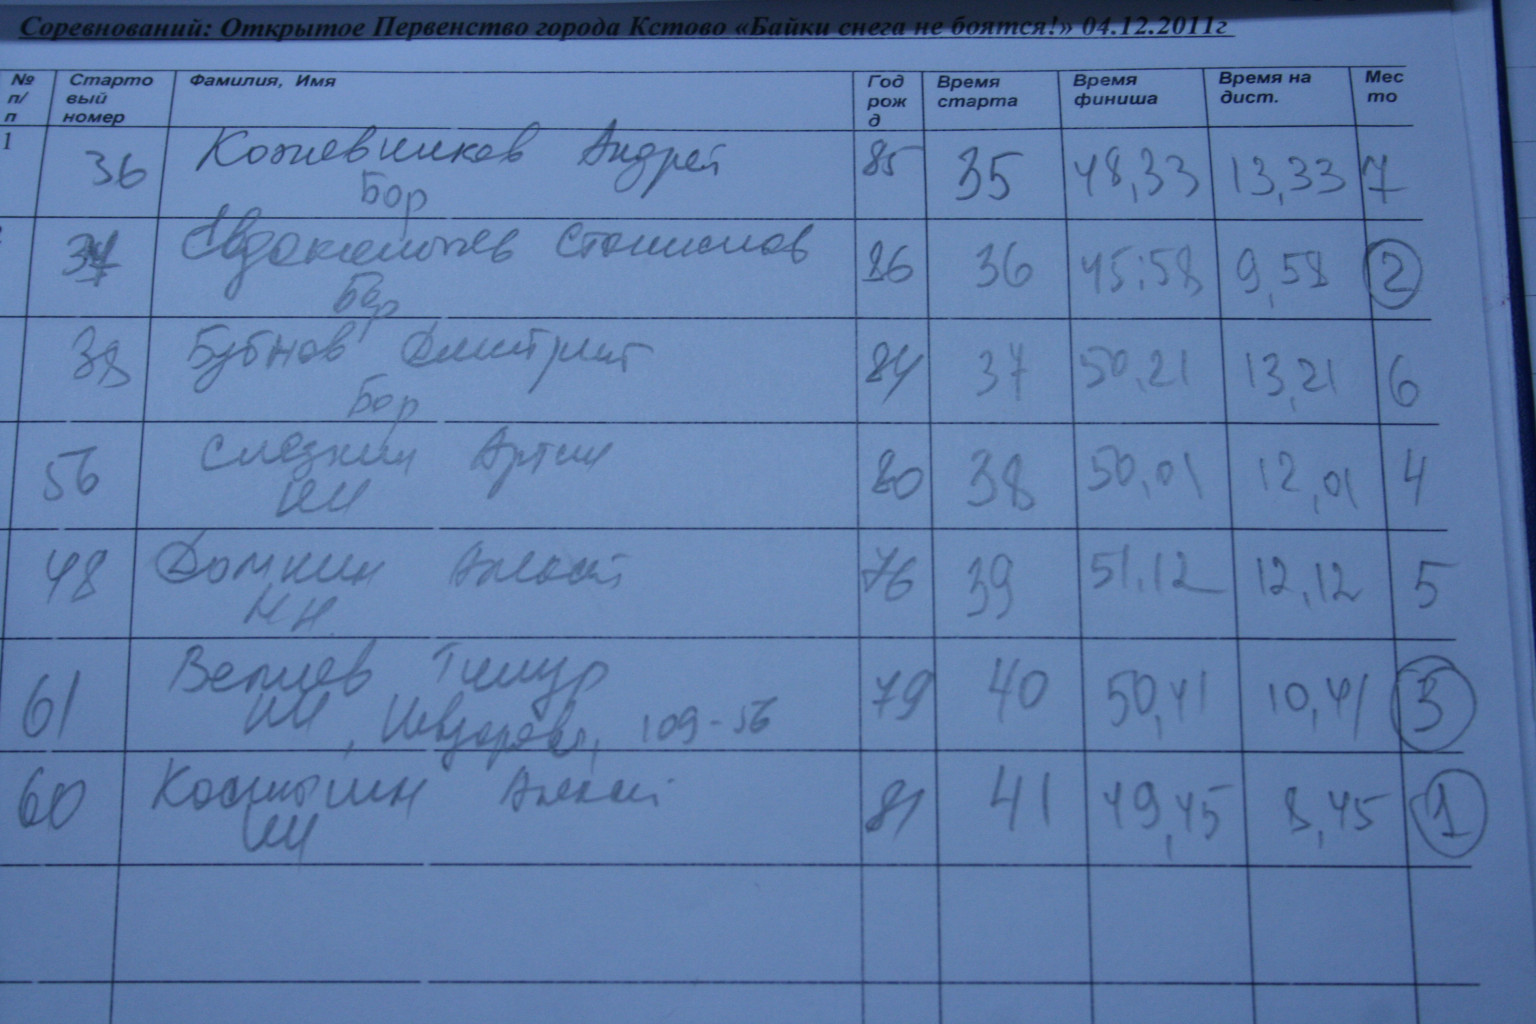 Соревнований: Открытое Первенство города Кстово «Байки снега не боятся!» 04.12.2011г
№ п/п Стартовый номер Фамилия, Имя Год рожд Время старта Время финиша Время на дист. Место
1 36 Кожевников Андрей 85 35 48,33 13,33 7
Бор
37 Евдокимычев Станислав 86 36 45:58 9,58 2
Бор
38 Бубнов Дмитрий 84 37 50,21 13,21 6
Бор
56 Слезкин Артем 80 38 50,01 12,01 4
НН
48 Домнин Алексей 76 39 51,12 12,12 5
НН
61 Велиев Тимур 79 40 50,41 10,41 3
НН, 109-56
60 Костышин Алексей 81 41 49,45 8,45 1
НН